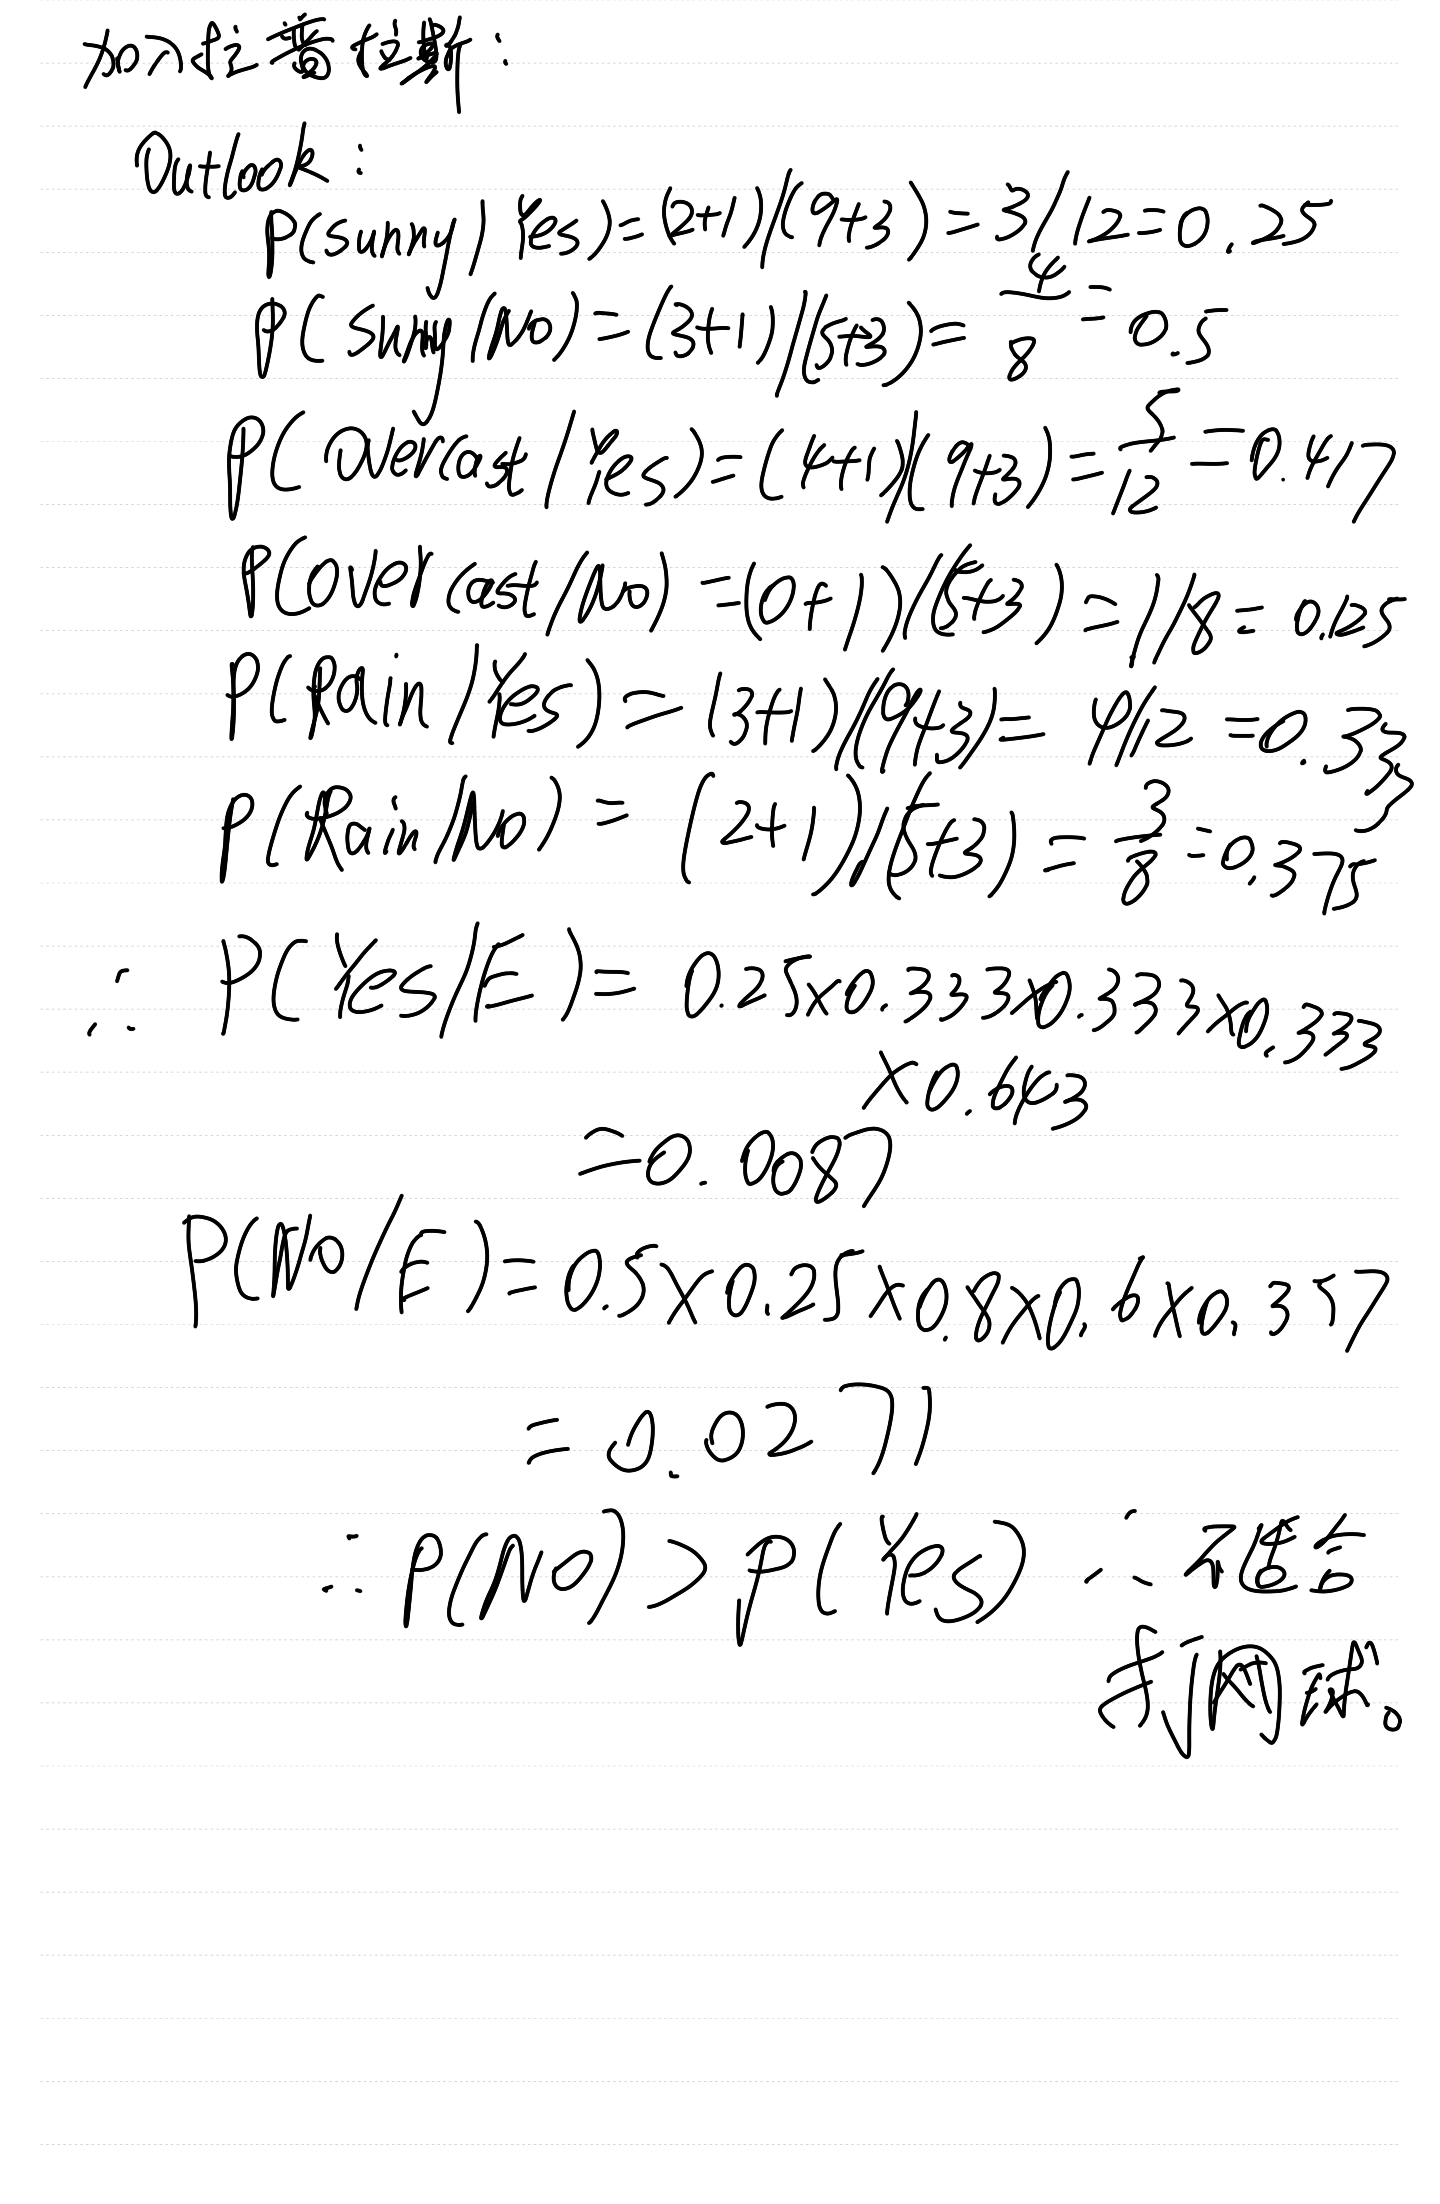 加入拉普拉斯:
Outlook:
P(sunny|Yes)=(2+1)/(9+3)=3/12=0.25
P(sunny/No)=(3+1)/(5+3)=4/8=0.5
P(Overcast/Yes)=(4+1)/(9+3)=5/12=0.417
P(Overcast/No)=(0+1)/(5+3)=1/8=0.125
P(Rain/Yes)=(3+1)/(9+3)=4/12=0.333
P(Rain/No)=(2+1)/(5+3)=3/8=0.375
∴ P(Yes/E)=0.25×0.333×0.333×0.333
×0.643
=0.0087
P(No/E)=0.5×0.25×0.8×0.6×0.357
=0.0271
∴P(No)>P(Yes) ∴不适合
打网球。